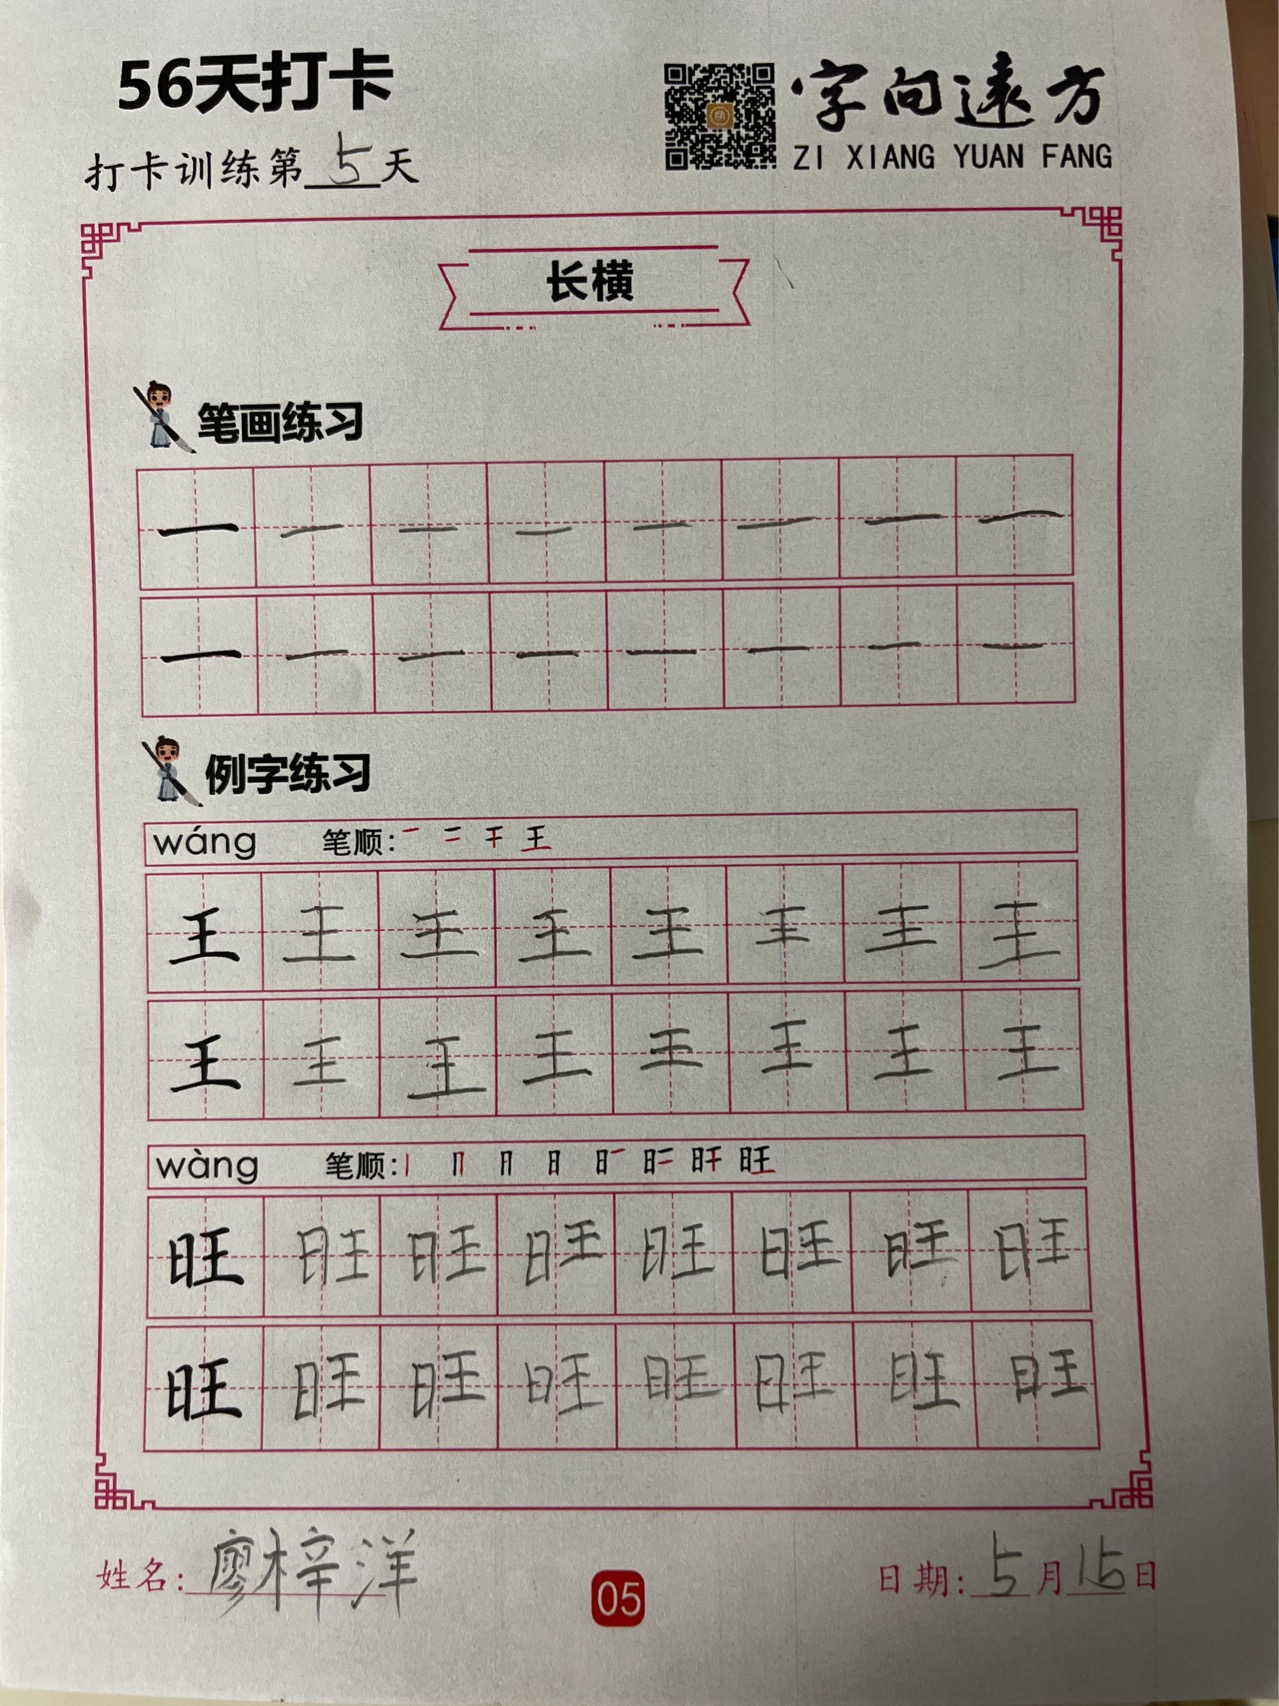 56天打卡
字向遠方
ZI XIANG YUAN FANG
打卡训练第5天
长横
笔画练习
一 一 一 一 一 一 一 一
一 一 一 一 一 一 一 一
例字练习
wáng 笔顺: 一 二 干 王
王 王 王 王 王 王 王 王
王 王 王 王 王 王 王 王
wàng 笔顺: 丨 冂 月 日 旺
旺 旺 旺 旺 旺 旺 旺 旺
旺 旺 旺 旺 旺 旺 旺 旺
姓名: 廖梓洋
05
日期: 5月15日